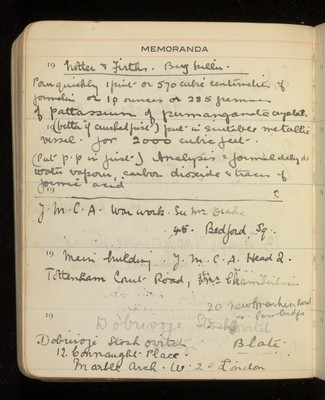 MEMORANDA
19 Notter & Firths. Bug killer.
Pour quickly 1 pint or 570 cubic centimetres of
formalin on 10 ounces or 285 grammes
of pottassium of permanganate crystals
(better if crushed first) put in suitable metallic
vessel. for 2000 cubic feet.
(Put p.p in first) Analysis = formaldehyde
water vapour, carbon dioxide & traces of
formic acid
19
Y.M.C.A. War work. See Mr Drake
48. Bedford Sq.
19 Main building. Y.M.C.A. Head Q.
Tottenham Court Road, Mr Chamberlain
20 Newmarket Road
Cambridge
19
Dobrivoje Stoshovitch
Dobrivoje Stoshovitch Blate
12. Connaught Place.
Marble Arch. W. 2. London